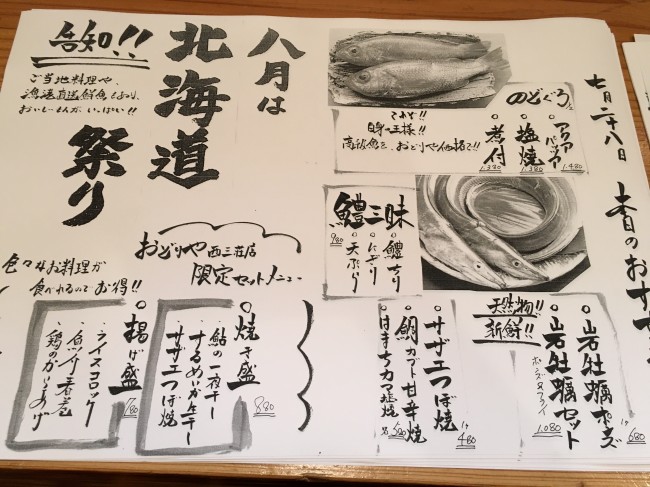 七月二十八日 本日のおすす
のどぐろ
アクアパッツァ 1.480
塩焼 1.380
煮付 1.380
これぞ!!
白身の王様!!
高級魚を、おどりや価格で!!
鱧三昧 980
鱧ちり
にぎり
天ぷら
天然物!! 新鮮!!
岩牡蠣ポンズ 1ヶ 680
岩牡蠣セット 1.080
ポンズ&フライ
サザエつぼ焼 1ヶ 480
鯛カブト甘辛焼 580
はまちカマ塩焼
八月は
北海道
祭り
告知!!
ご当地料理や、
漁港直送鮮魚もあり、
おいしーもんが、いっぱい!!
おどりや西三荘店
限定セットメニュー
色々なお料理が
食べれるのでお得!!
焼き盛 880
・鮎の一夜干し
・するめいか生干し
・サザエつぼ焼
揚げ盛 780
・ライスコロッケ
・魚介春巻
・鶏のからあげ